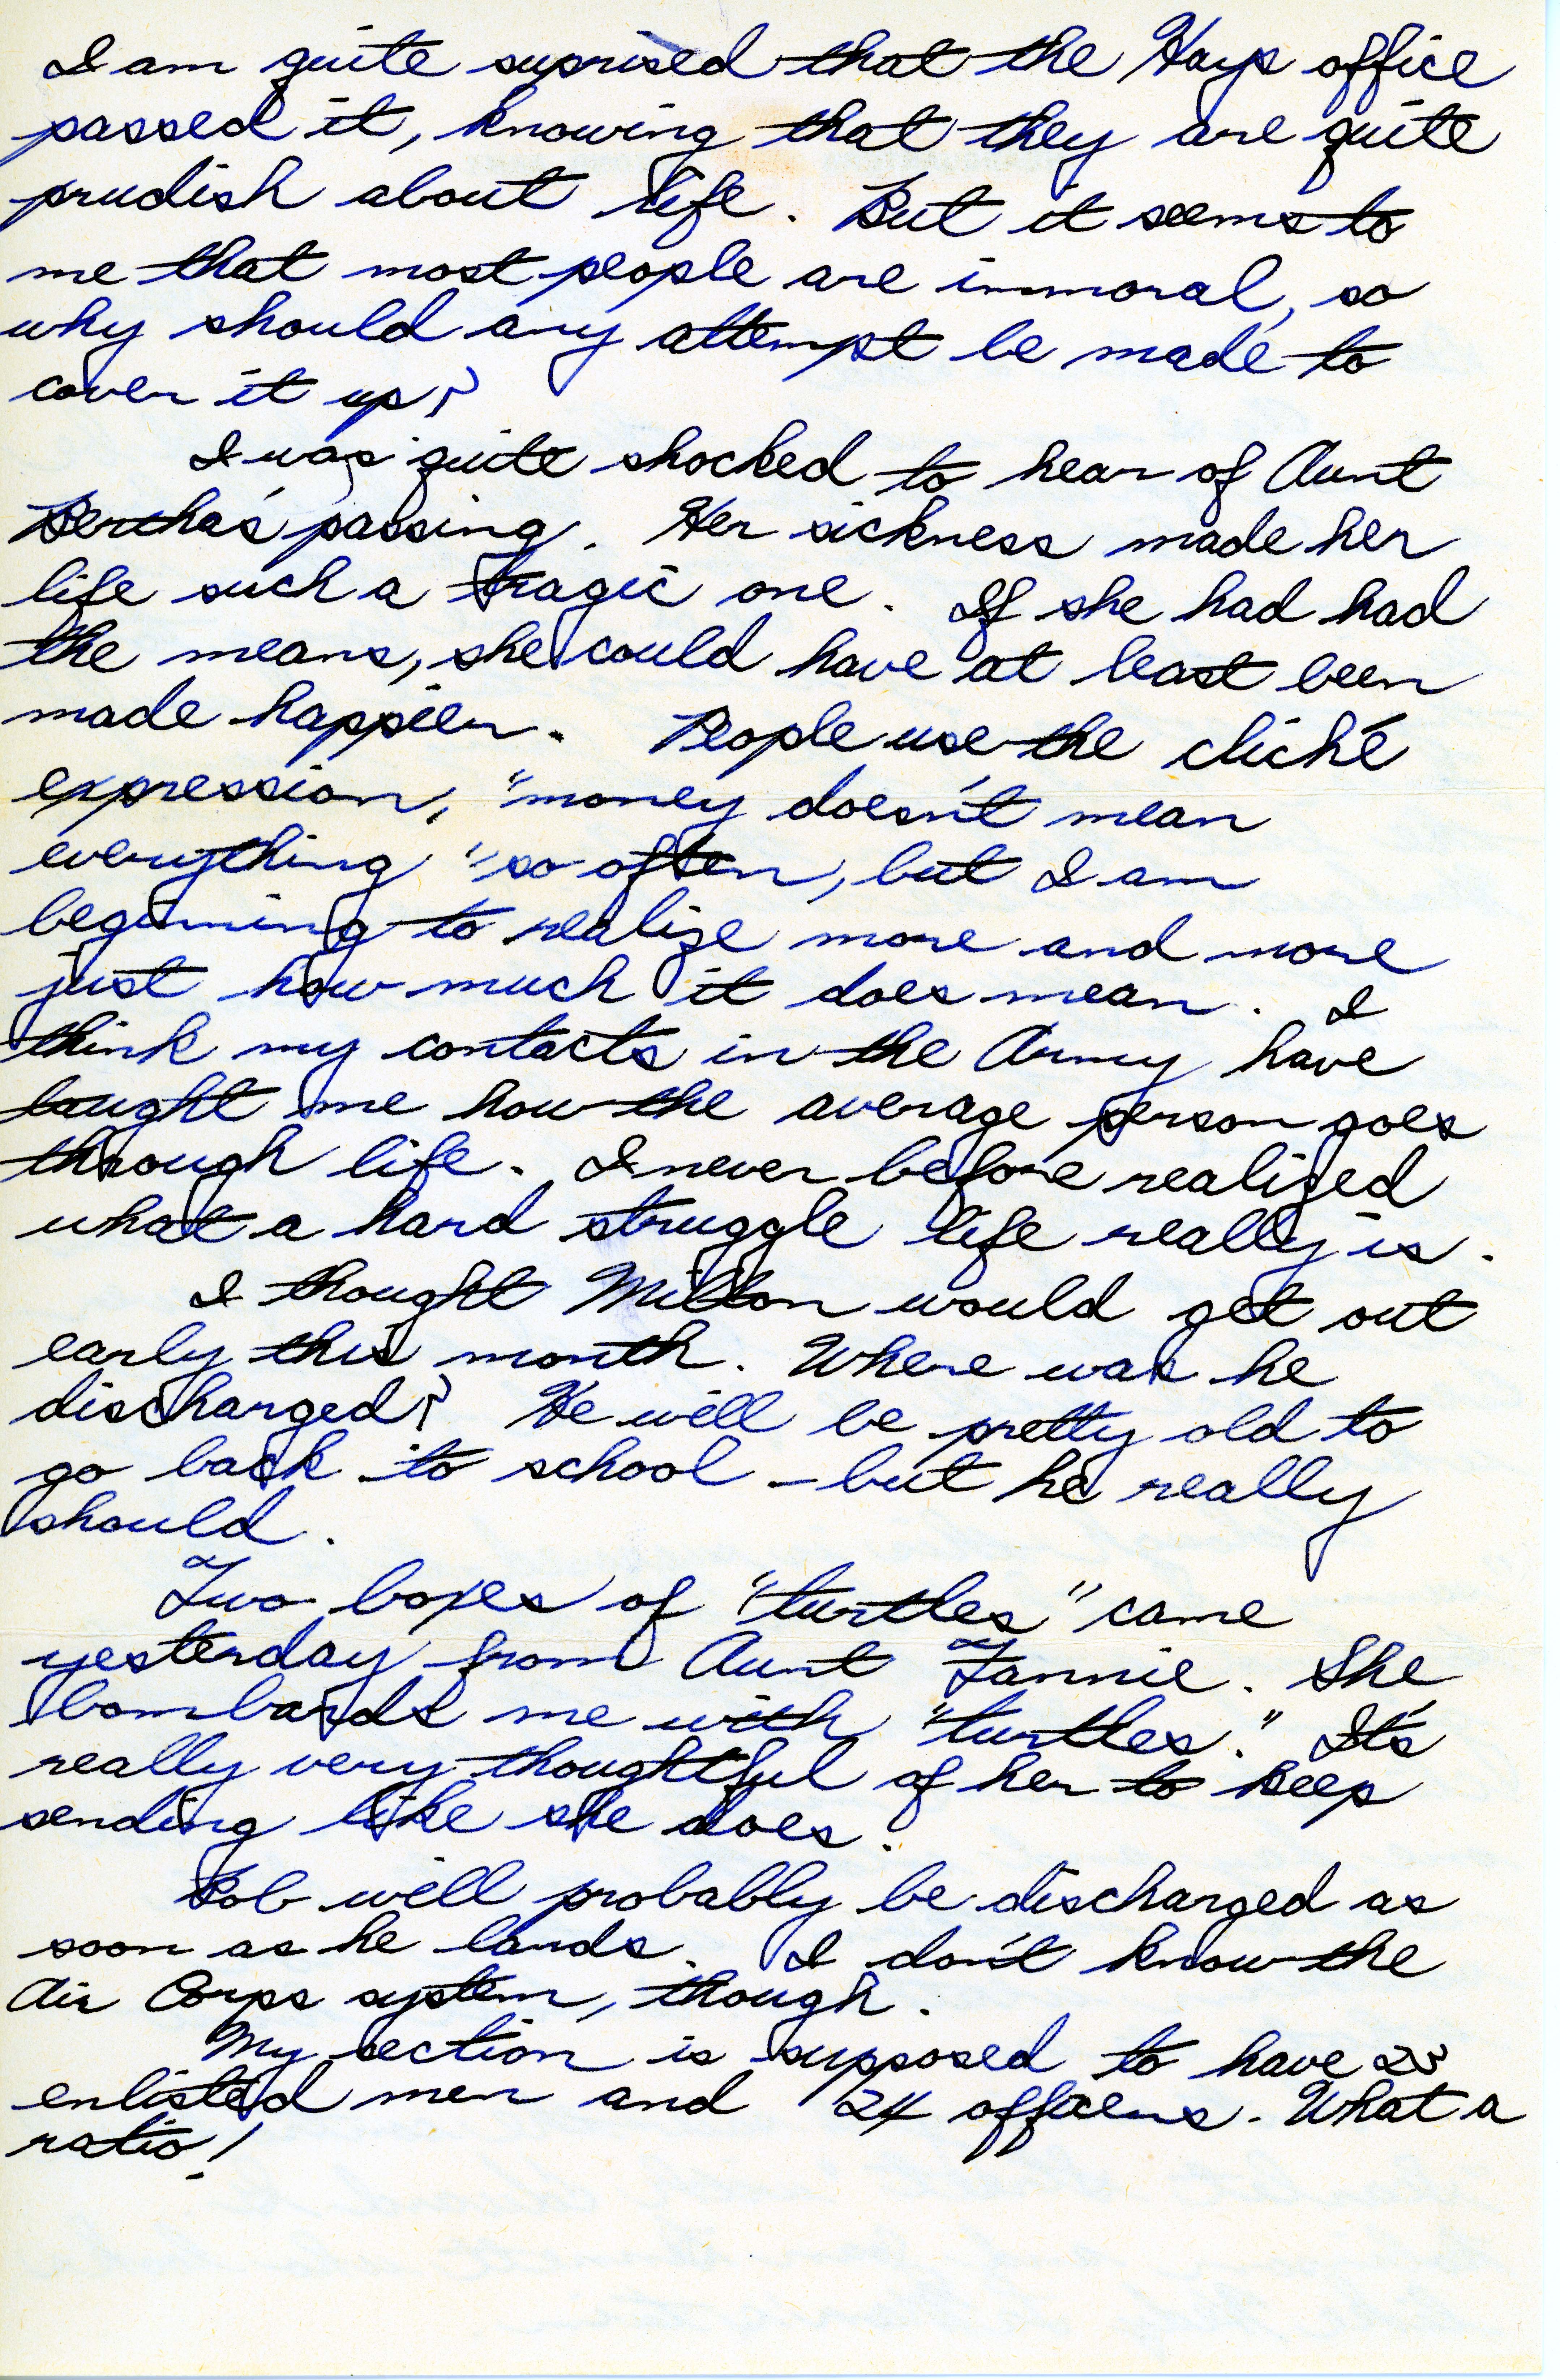 I am quite suprised that the Hays office
passed it, knowing that they are quite
prudish about life. But it seems to
me that most people are immoral, so
why should any attempt be made to
cover it up?
I was quite shocked to hear of Aunt
Bertha's passing. Her sickness made her
life such a tragic one. If she had had
the means, she could have at least been
made happier. People use the cliché
expression, "money doesn't mean
everything" so often, but I am
beginning to realize more and more
just how much it does mean. I
think my contacts in the Army have
taught me how the average person goes
through life. I never before realized
what a hard struggle life really is.
I thought Milton would get out
early this month. Where was he
discharged? He will be pretty old to
go back to school - but he really
should.
Two boxes of "turtles" came
yesterday from Aunt Fannie. She
bombards me with "turtles." It's
really very thoughtful of her to keep
sending like she does.
Bob will probably be discharged as
soon as he lands. I don't know the
Air Corps system, though.
My section is supposed to have 23
enlisted men and 24 officers. What a
ratio!